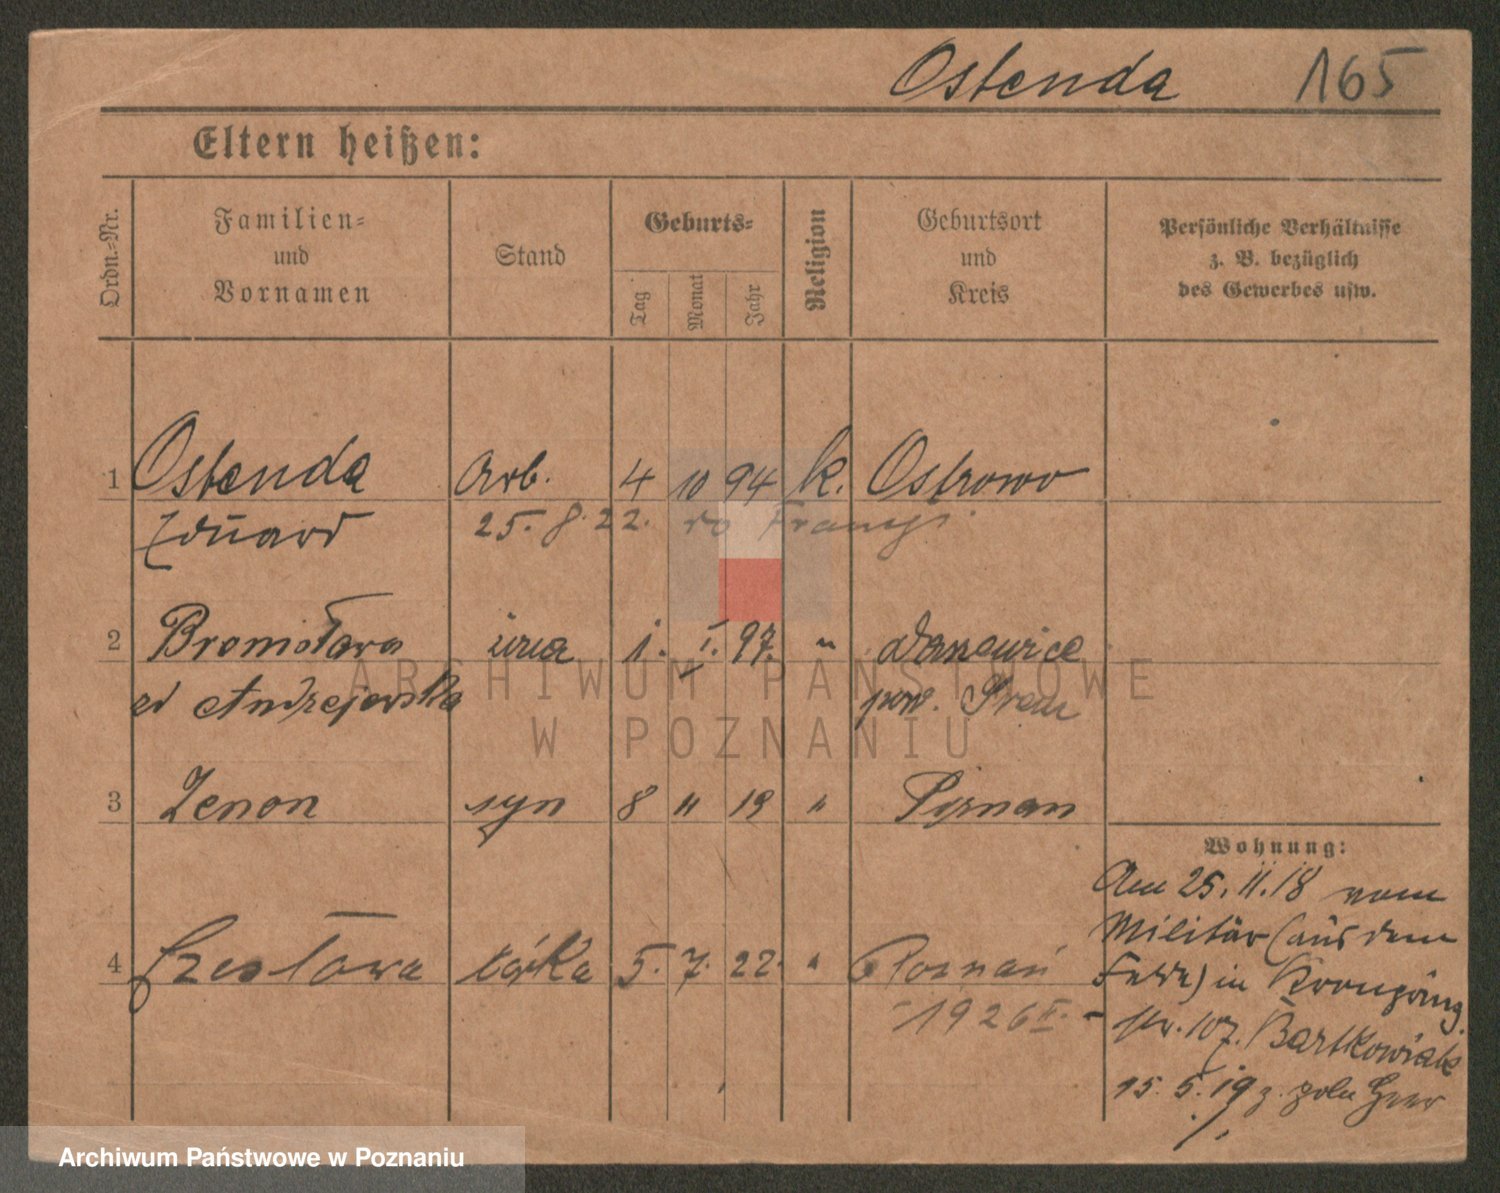 Ostenda 165
Eltern heißen:
Ordn.=Nr.
Familien=
und
Vornamen
Stand
Geburts=
Tag
Monat
Jahr
Religion
Geburtsort
und
Kreis
Persönliche Verhältnisse
z. B. bezüglich
des Gewerbes usw.
1 Ostenda Arb. 4 10 94 k. Ostrowo
Eduard 25. 8. 22. do Francji
2 Bronisława żona 1. I. 97. "
pow. Śrem
ed Andrzejewska
3 Zenon syn 8 11 19 " Poznan
Wohnung:
Am 25. 11. 18 vom
Militär (aus dem
Felde) in Kronprinz.
str. 107. Bartkowiak
15. 5. 19 z. poln Heer
4 Czesława córka 5. 7. 22. " Poznań
- 1926 I. -
ARCHIWUM PAŃSTWOWE
W POZNANIU
Archiwum Państwowe w Poznaniu